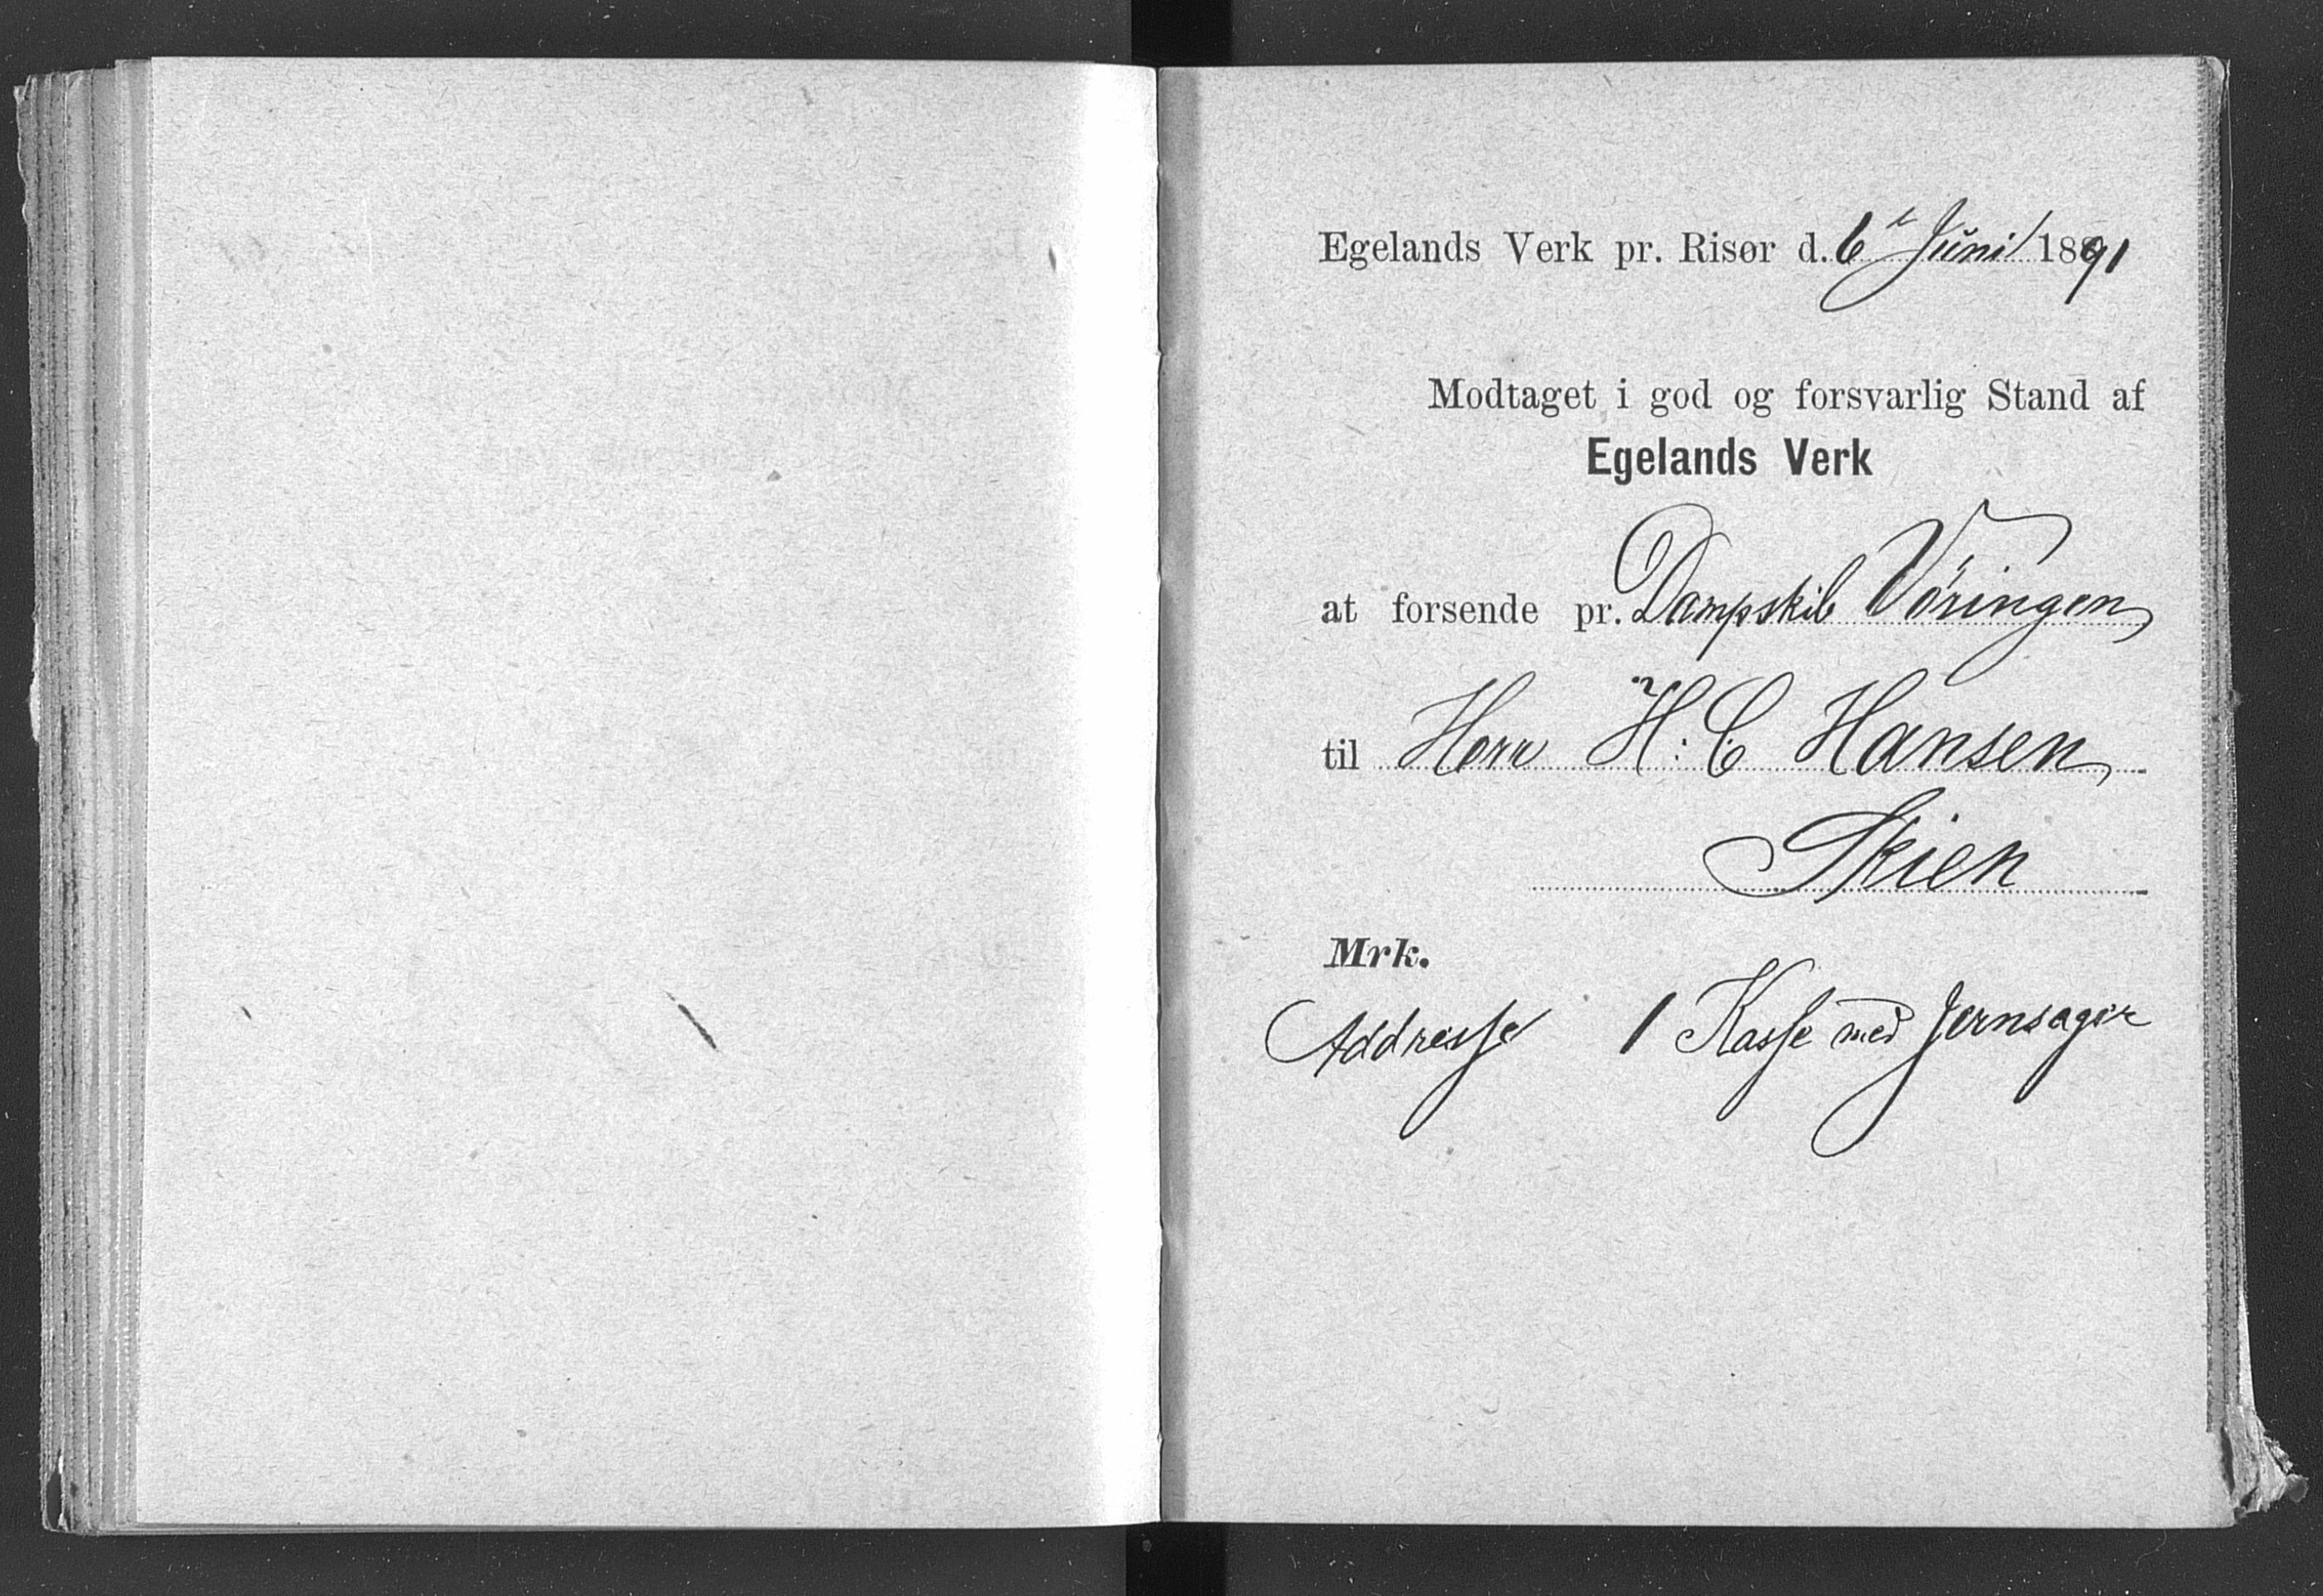 Egelands Verk pr. Risør d. 6te Juni 1891
Modtaget i god og forsvarlig Stand af
Egelands Verk
at forsende pr. Dampskib Vøringen
til Herr H. C. Hansen
Skien
Mrk.
Addresse 1 Kasse med Jernsager